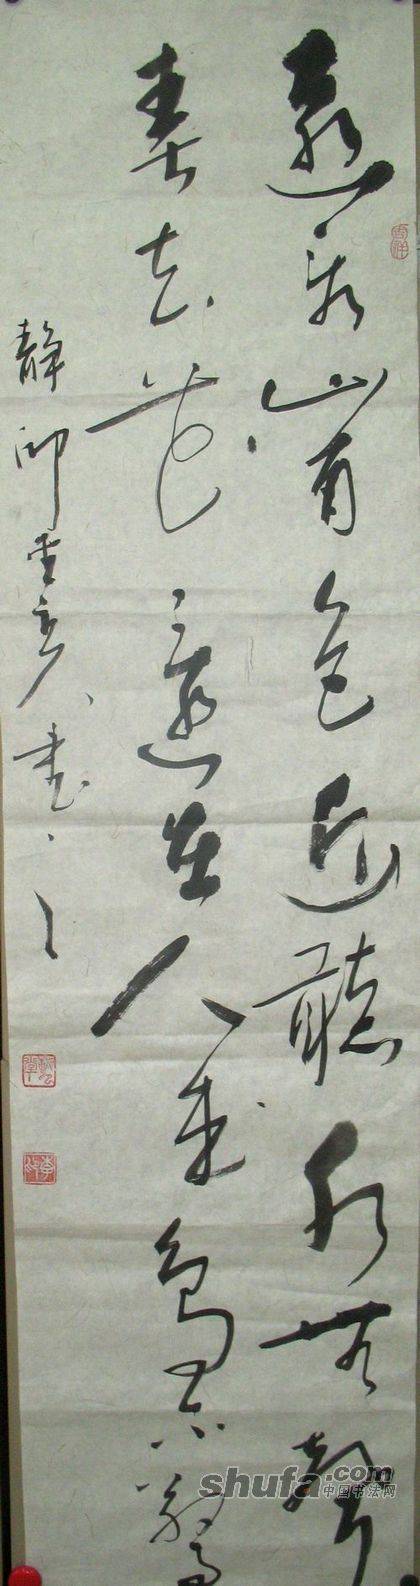 遠看山有色近聽水無聲
春去花還在人來鳥不驚
静書之
shufa.com
中国书法网